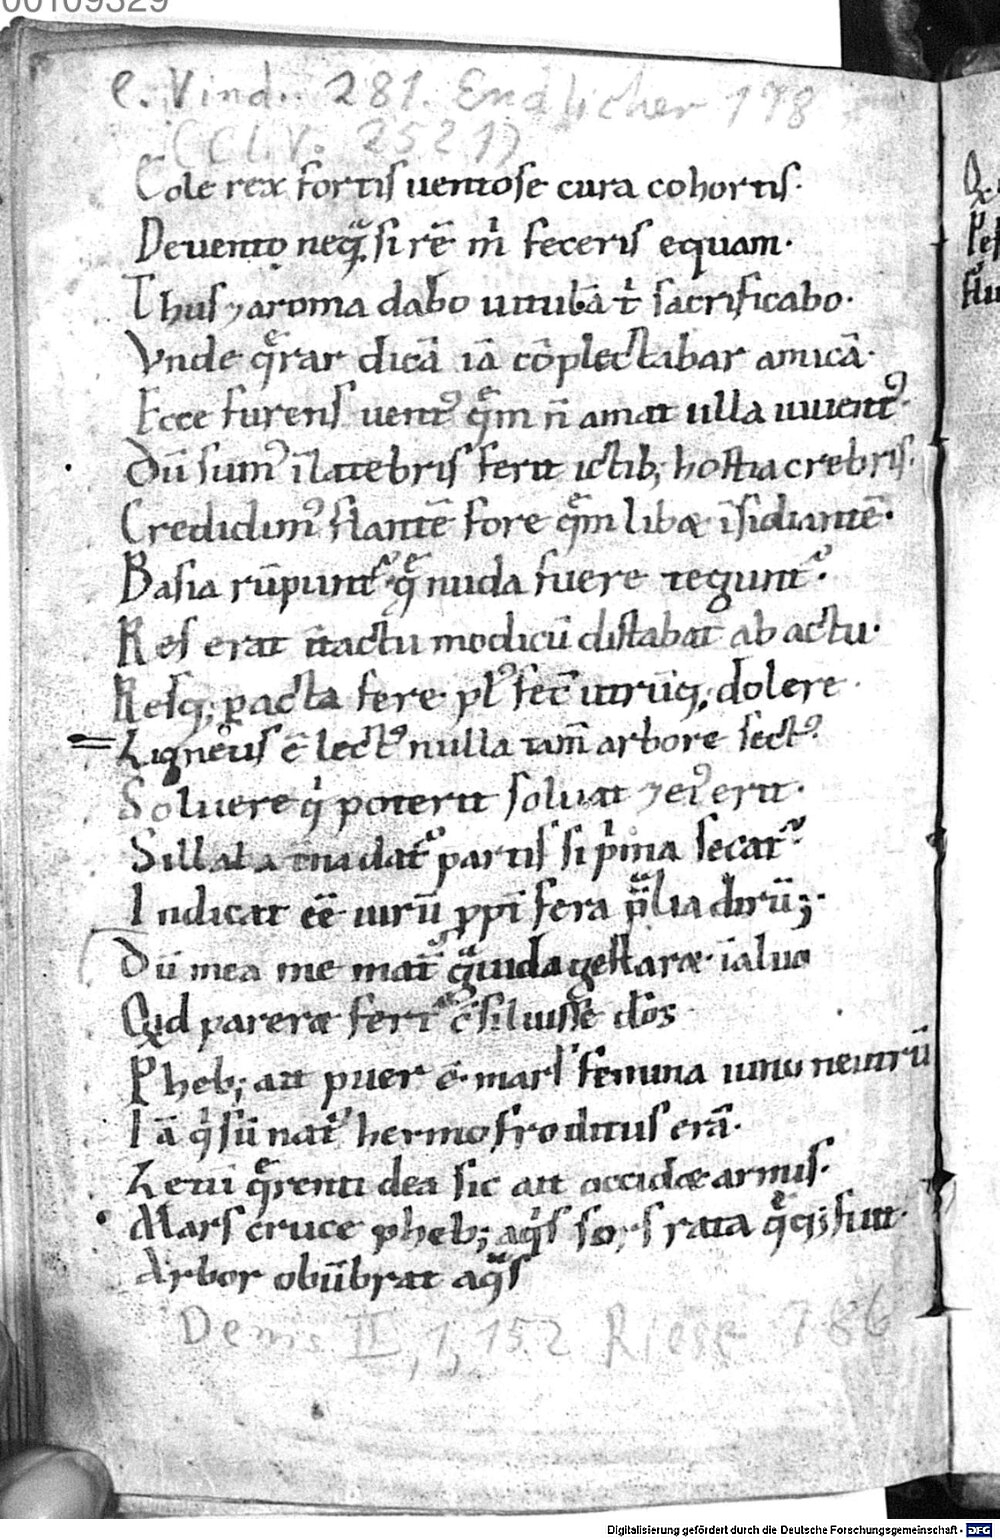 00109329
C. Vind. 281. Endlicher 178
(CCLV. 2521)
Cole rex fortis uentose cura cohortis·
De uento neqͣꝫ si rē m̍ feceris equam·
Thus ⁊ aroma dabo uitulā t̍ sacrificabo·
Vnde q̄rar dicā iā cōplectabar amicā·
Ecce furens uentꝰ quē n̄ amat ulla iuuentꝰ·
Dū sumꝰ ī latebris ferit ictibꝫ hostia crebris·
Credidimꝰ flantē fore quē libæ īsidiantē·
Basia rūpunt᷑ q̄ nuda fuere tegunt᷑·
Res erat ītactu modicū distabat ab actu·
Resqꝫ pacta fere plꝰ fec̄ utrūqꝫ dolere·
Ligneus ē lectꝰ nulla tam̄ arbore sectꝰ·
Soluere q̍ poterit soluat ⁊ eiꝰ erit·
Sillaba madat᷑ partis si p̍ma secat᷑·
Indicat eē uirū ꝓpī fera p̄lia dirū;·
Dū mea me mat̄ gͣuida gestaræ īaluo
Qid pareræ fert᷑ c̄siluisse dōs
Phebꝫ ait puer ē· mars femina iuno neutrū
Iā q̍ sū natꝰ hermofroditus erā·
Letū q̄renti dea sic ait occidæ armis·
Mars cruce phebꝫ aq̍s sors rata q̄qꝫ fuit·
Arbor obūbrat aqͣs
Denis II, 1, 152 Riese 786
Digitalisierung gefördert durch die Deutsche Forschungsgemeinschaft - DFG